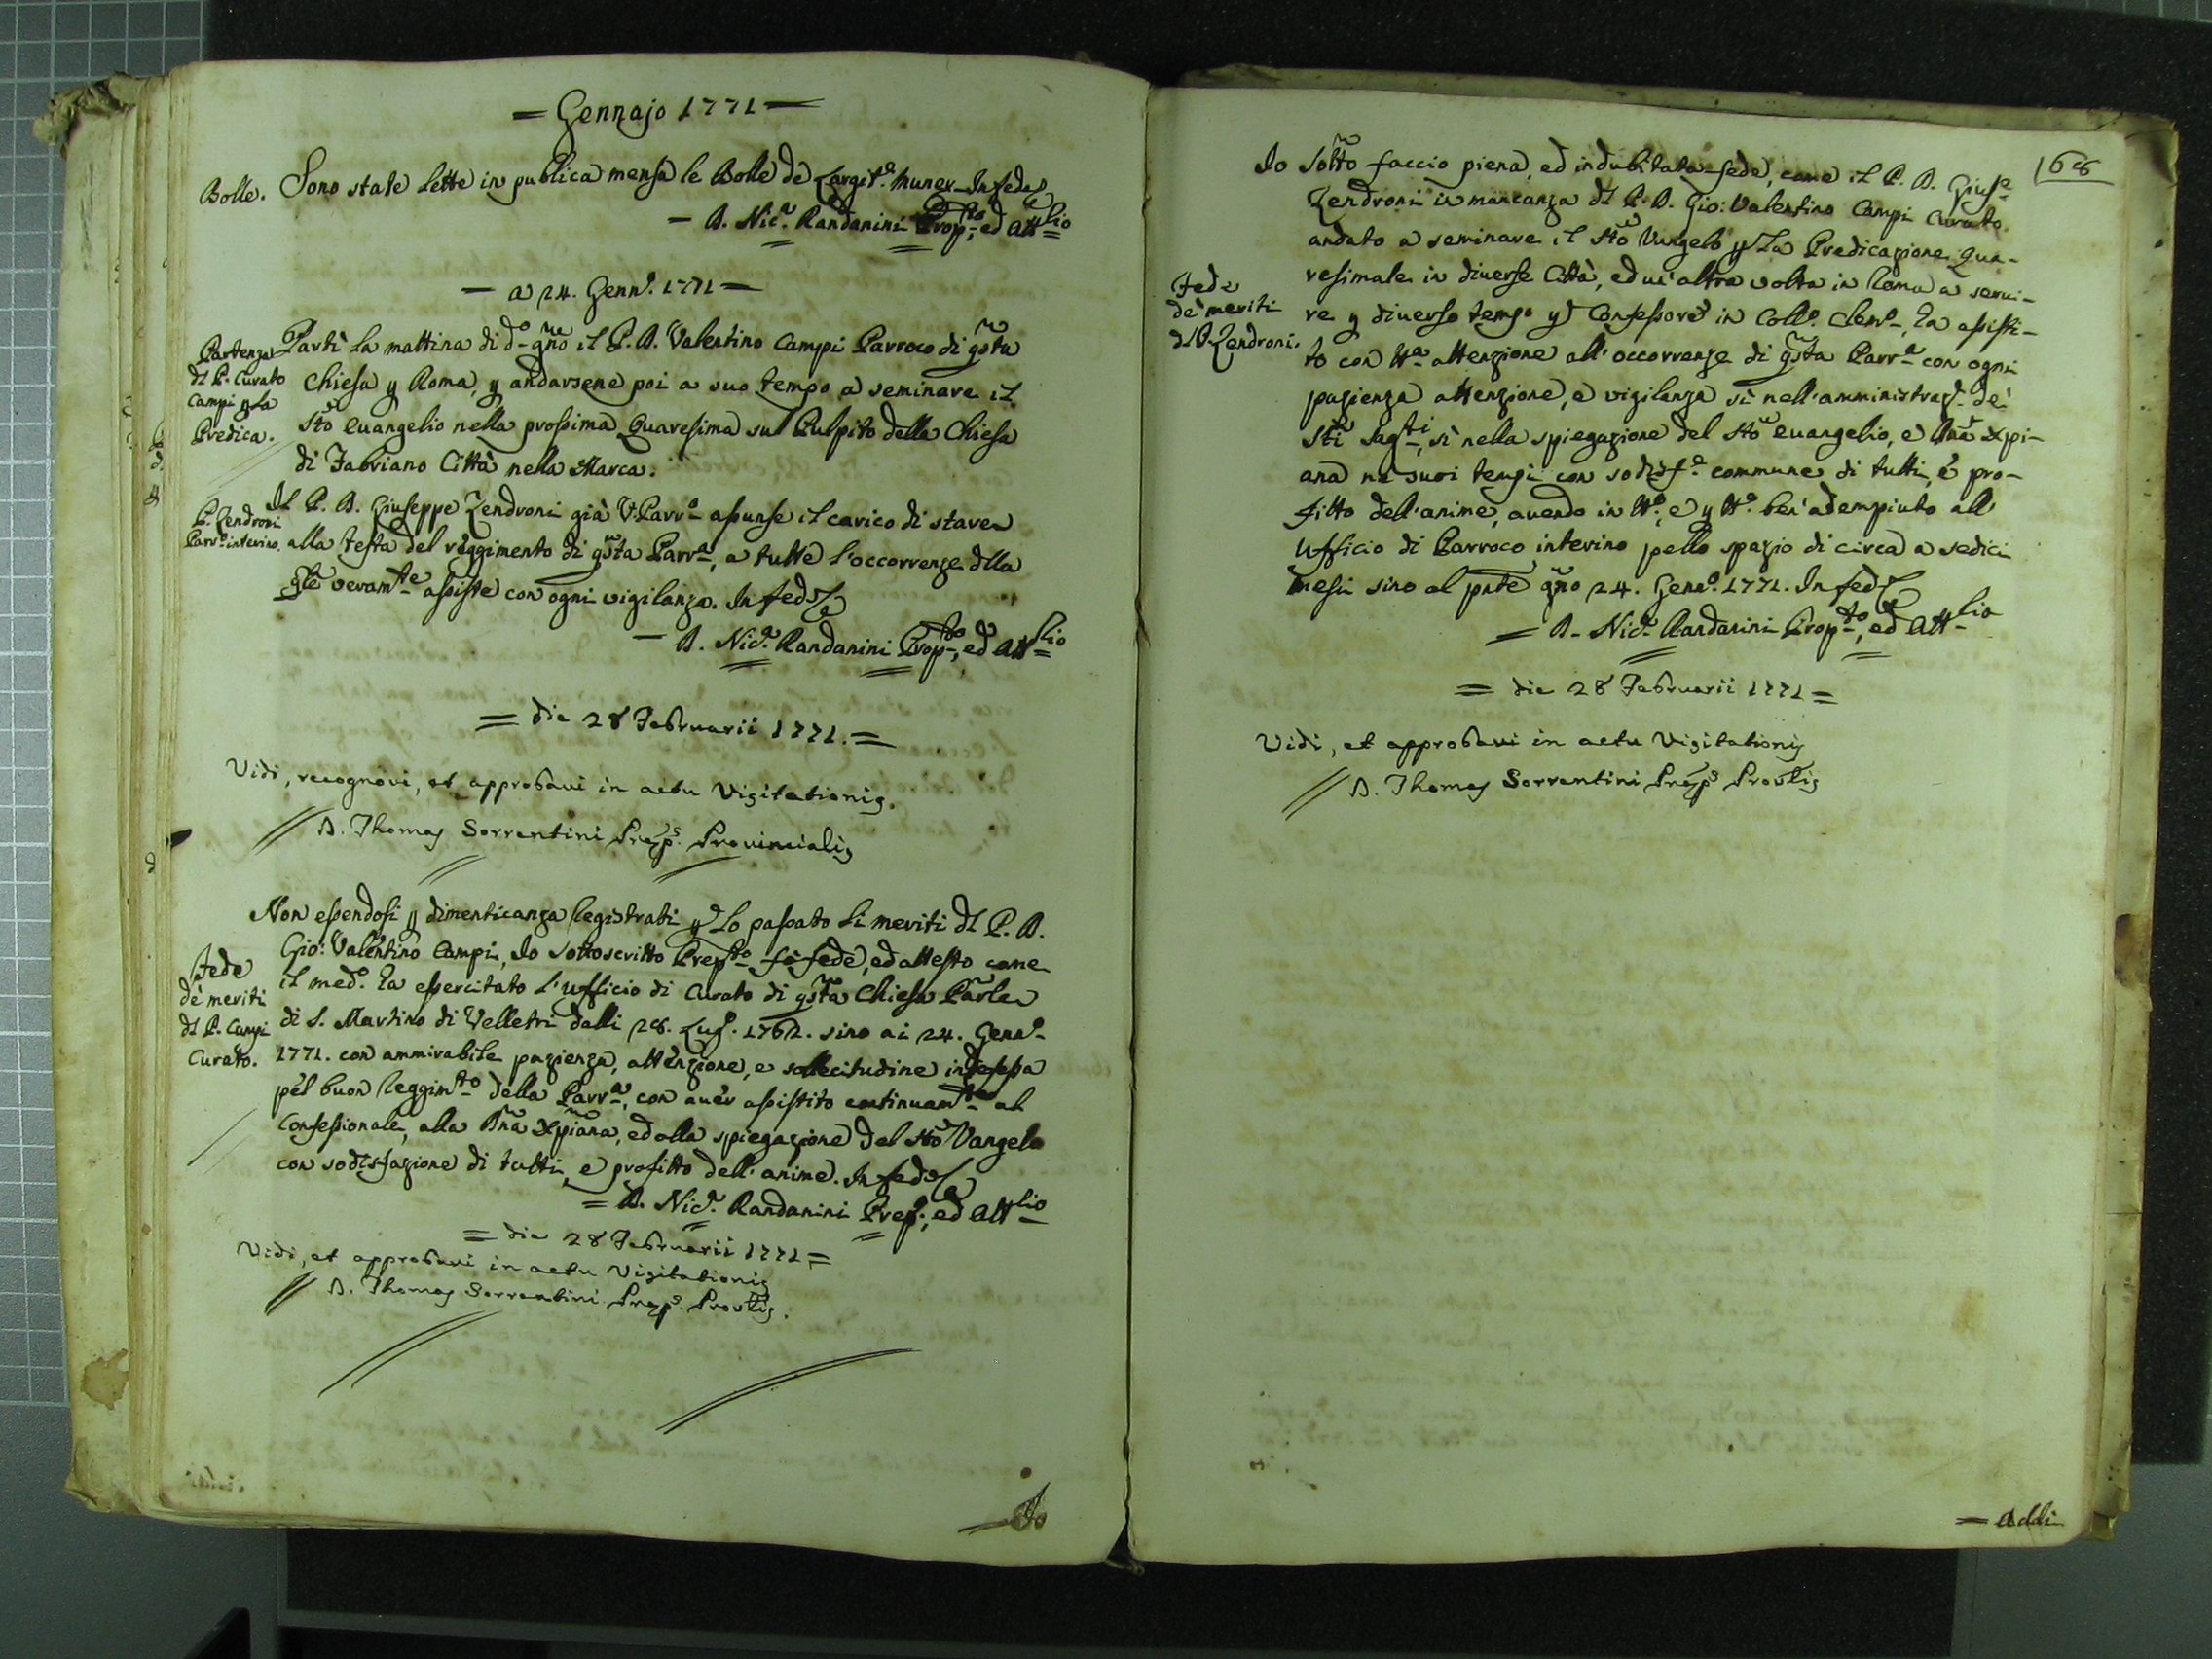 = Gennajo 1771 =
Bolle. Sono state lette in publica mensa le Bolle de Largit.e muner. In fede
= D. Nic.a Randanini Prop.to, ed Att.lio
= a 24. Genn.o 1771 =
Partenza
dl P. Curato
Campi p la
Predica.
Partì la mattina di d.o gno il P. D. Valentino Campi Parroco di qsta
Chiesa p Roma, p andarsene poi a suo tempo a seminare il
sto Euangelio nella prossima Quaresima sul Pulpito della Chiesa
di Fabriano Città nella Marca.
P. Zendroni
Parr.o interino.
Il P. D. Giuseppe Zendroni già V. Parr.o assunse il carico di stare
alla testa del reggimento di qsta Parr.a, a tutte l'occorrenze dlla
qle veram.te assiste con ogni vigilanza. In fede
= D. Nic.a Randanini Prop.to, ed Att.lio
= die 28 Februarii 1771. =
Vidi, recognovi, et approbaui in actu Visitationis.
// D. Thomas Sorrentini Præp.s Prouincialis
Fede
de meriti
dl P. Campi
Curato.
Non essendosi p dimenticanza registrati p lo passato li meriti dl P. D.
Gio: Valentino Campi, Io sottoscritto Prep.to fò fede, ed attesto come
il med.o ha essercitato l'ufficio di Curato di qsta Chiesa Parle
di S. Martino di Velletri dalli 28. Lug.o 1762. sino ai 24. Genn.o
1771. con ammirabile pazienza, attenzione, e sollecitudine indefessa
pel buon reggim.to della Parr.a, con auer assistito continuam.te al
Confessionale, alla Dna Xpiana, ed alla spiegazione del sto Vangelo
con sodisfazione di tutti, e profitto dell'anime. In fede
= D. Nic.a Randanini Prep.o, ed Att.lio
= die 28 Februarii 1771 =
Vidi, et approbaui in actu Visitationis
// D. Thomas Sorrentini Præp.s Provlis.
= Io
168
Fede
de meriti
dl P. Zendroni.
Io sotto faccio piena, ed indubitata fede, come il P. D. Gius.e
Zendroni in mancanza dl P. D. Gio: Valentino Campi Curato
andato a seminare il sto Vangelo p la Predicazione Qua-
resimale in diverse Città, ed un'altra volta in Roma a servi-
re p diuerso tempo p Confessore in Coll.o Clem.o ha assisti-
to con tt.a attenzione all'occorrenze di qsta Parr.a con ogni
pazienza attenzione, e vigilanza sì nell'amministraz.e de'
sti Sag.ti, sì nella spiegazione del sto euangelio, e Dna Xpi-
ana ne suoi tempi con sodisf.e commune di tutti, e pro-
fitto dell'anime, auendo in tt.o, e p tt.o ben adempiuto all'
Ufficio di Parroco interino pello spazio di circa a sedici
mesi sino al pnte gno 24. Genn.o 1771. In fede
= D. Nic.a Randanini Prop.to, ed Att.lio
= die 28 Februarii 1771 =
Vidi, et approbaui in actu Visitationis
// D. Thomas Sorrentini Præp.s Provlis
= Addi